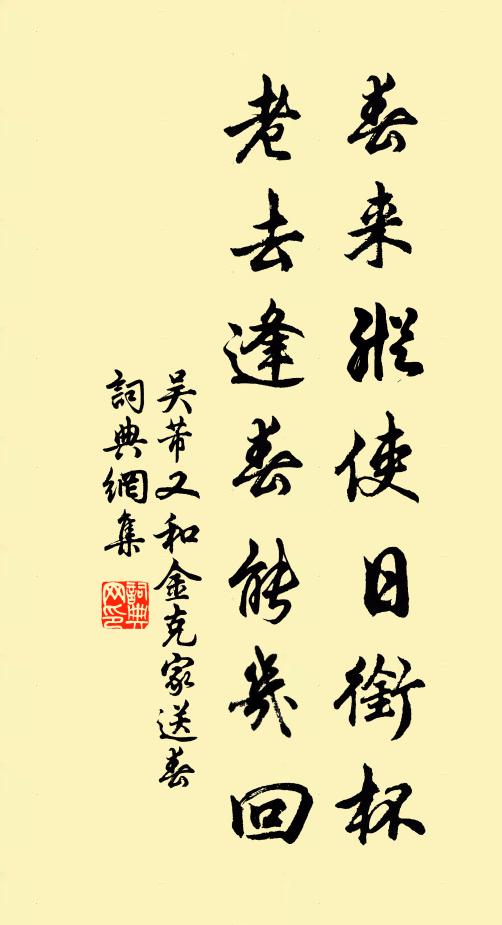 春来縱使日銜杯
老去逢春能幾回
吴芾又和金克家送春
詞典網集
詞典
网印